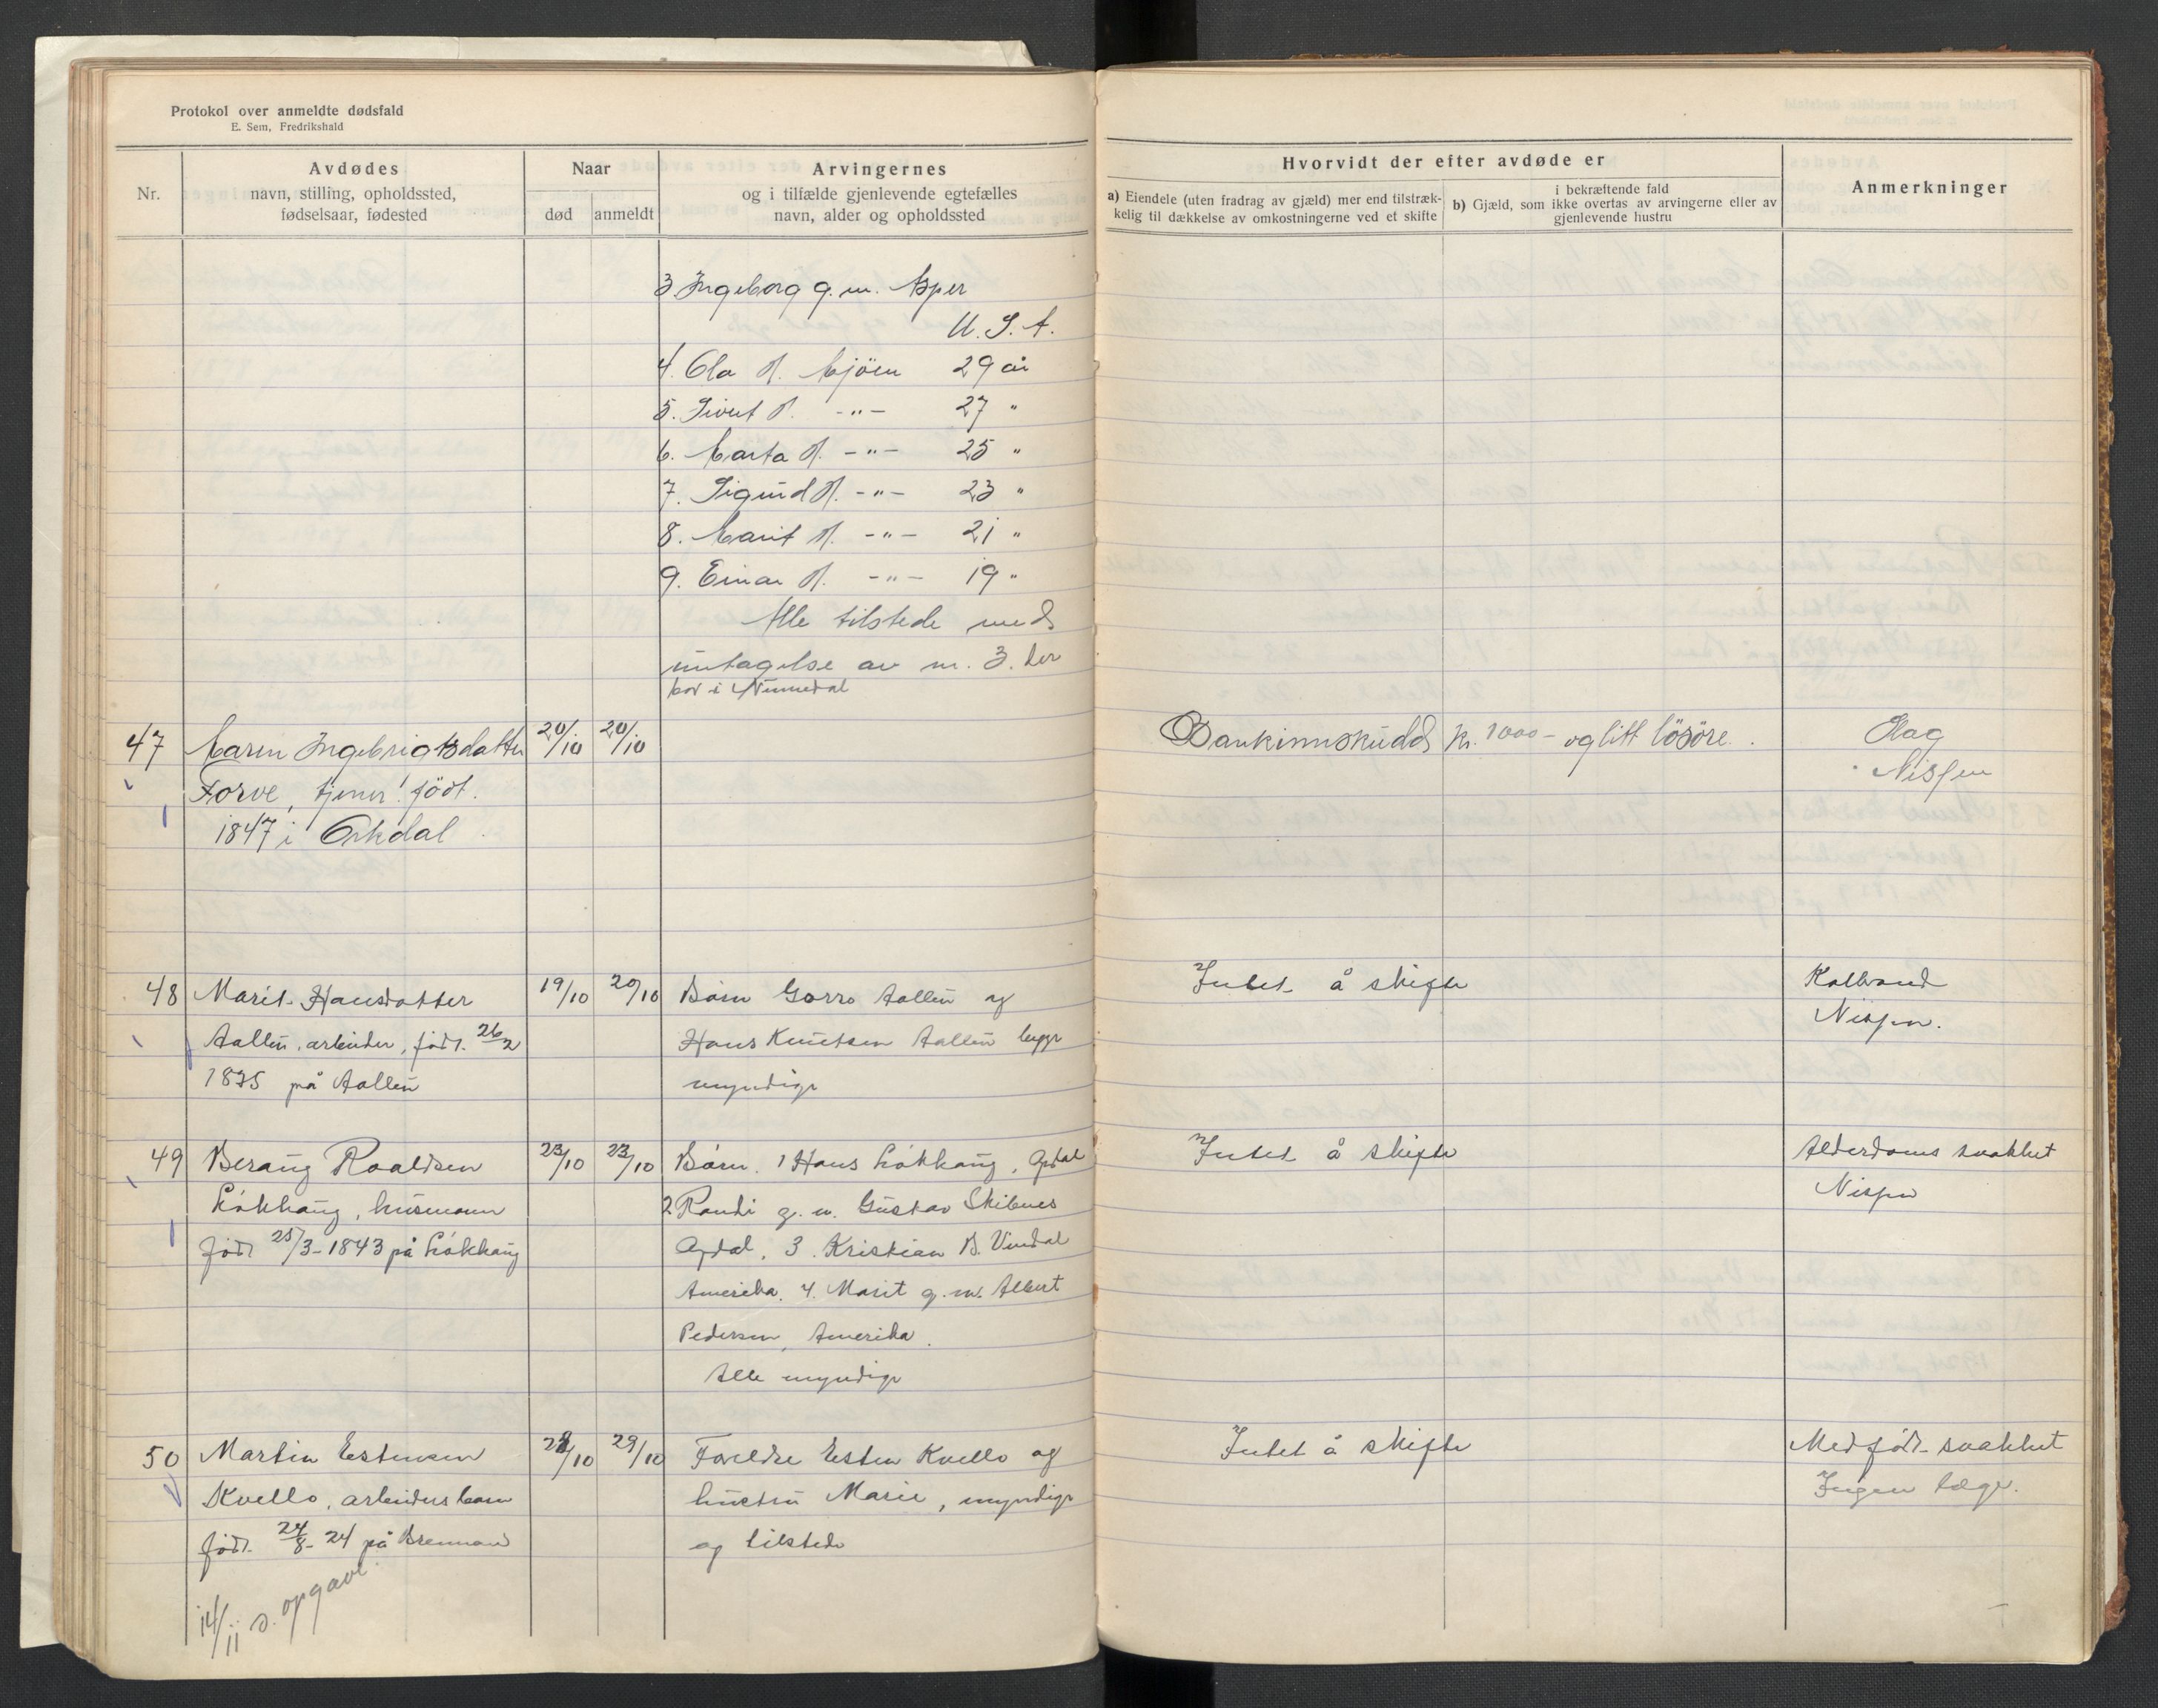 Protokol over anmeldte dødsfald
E. Sem, Fredrikshald
Nr.
Avdødes
navn, stilling, opholdssted,
fødselsaar, fødested
Naar
død
anmeldt
Arvingernes
og i tilfælde gjenlevende egtefælles
navn, alder og opholdssted
Hvorvidt der efter avdøde er
a) Eiendele (uten fradrag av gjæld) mer end tilstræk-
kelig til dækkelse av omkostningerne ved et skifte
i bekræftende fald
b) Gjæld, som ikke overtas av arvingerne eller av
gjenlevende hustru
Anmerkninger
3. Ingeborg g. m.
U. S. A.
4. Ola O. Mjöen 29 år
5. Sivert O. -"- 27 "
6. Marta O. -"- 25 "
7. Sigurd O. -"- 23 "
8. Marit O. -"- 21 "
9. Einar O. -"- 19 "
Alle tilstede med
untagelse av nr. 3. der
bor i
47 Maren Ingebrigtsdatter 20/10 20/10
Forve, tjener! født.
1847 i Orkdal
Bankinnskudd kr. 1000 - og litt lösöre.
Slag
Nissen
48 Marit Hansdatter 19/10 20/10 Barn Gorro Aallen og
Aallen, arbeider, født. 26/2 Hans Knutsen Aallen begge
1875 på Aallen myndige
Intet å skifte
Koldbrand
Nissen.
49 Berang Roaldsen 23/10 23/10 Barn. 1 Hans Løkhaug, Opdal
Løkhaug, husmann 2 Randi g. m. Gustav Skibnes
født 25/3-1843 på Løkhaug Opdal, 3. Kristian B. Vindal
Amerika. 4. Marit g. m. Albert
Pedersen, Amerika.
Alle myndige
Intet å skifte
Alderdoms svakhet
Nissen
50 Martin Estensen 28/10 29/10 Foreldre Esten Kvello og
Kvello, arbeiders barn hustru Marie, myndige
født 24/8-24 på Brennan og tilstede
Intet å skifte
Medfødt svakhet
Ingen læge.
14/11 s. opgave